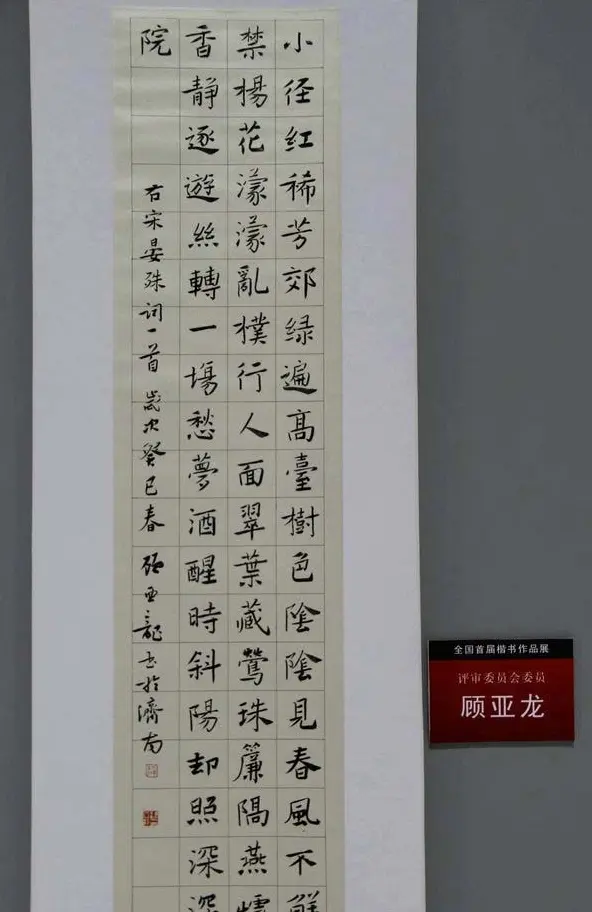 小径红稀芳郊绿遍高臺樹色陰陰見春風不
禁楊花濛濛亂樸行人面翠葉藏鶯珠簾隔燕
香静逐遊絲轉一塲愁夢酒醒時斜陽却照深深
院
右宋晏殊词一首 歲次癸巳春 顾亚龍书於濟南
全国首届楷书作品展
评审委员会委员
顾亚龙